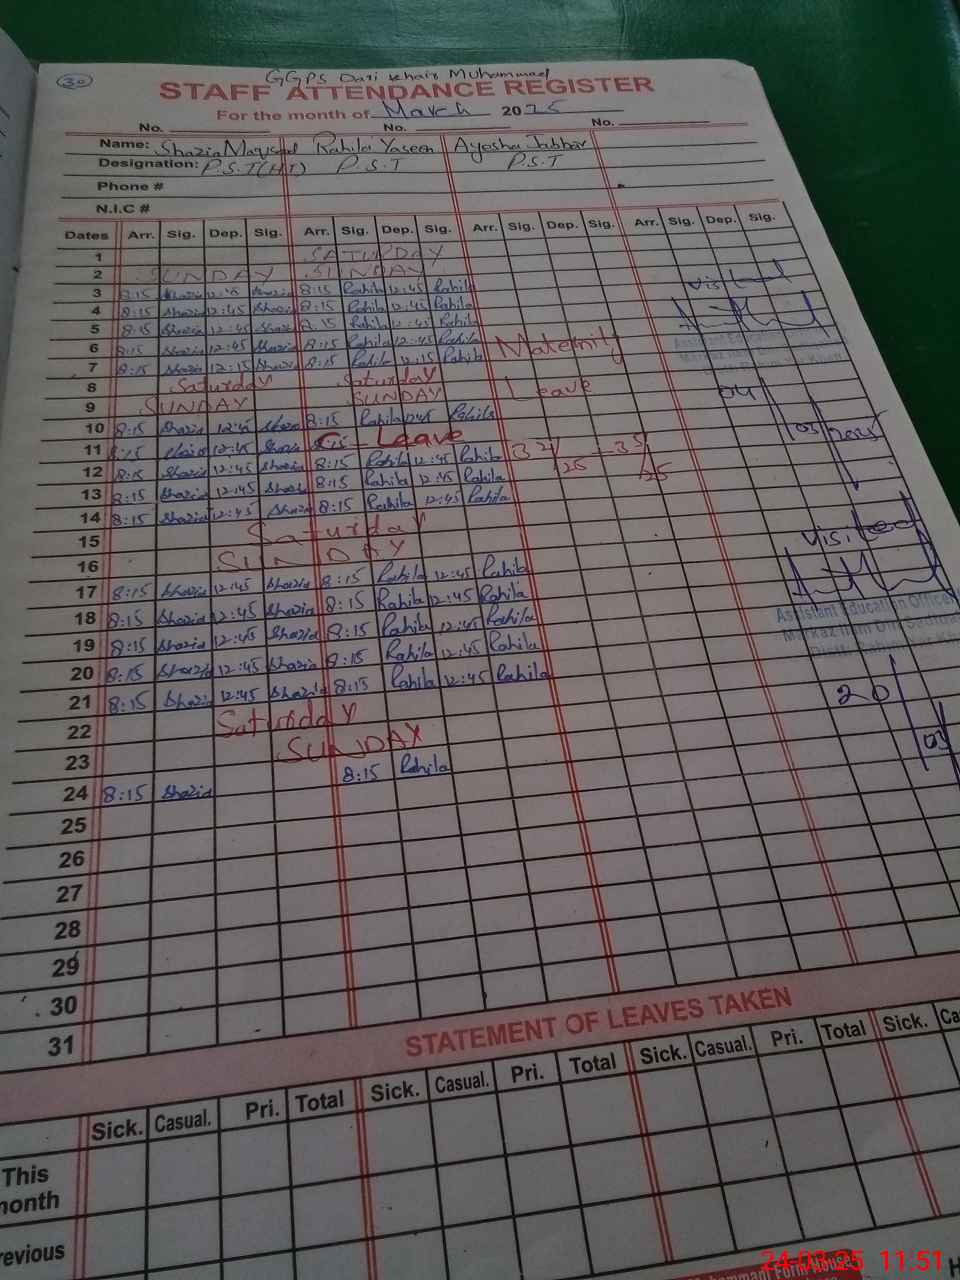 30
GGPS Dari Khair Muhammad
STAFF ATTENDANCE REGISTER
For the month of March 2025
No. No. No.
Name: Shazia Maqsood Rahila Yaseen Ayesha Jabbar
Designation: P.S.T(HT) P.S.T P.S.T
Phone #
N.I.C #
Dates Arr. Sig. Dep. Sig. Arr. Sig. Dep. Sig. Arr. Sig. Dep. Sig. Arr. Sig. Dep. Sig.
1 SATURDAY
2 SUNDAY SUNDAY
3 8:15 Shazia 12:45 Shazia 8:15 Rahila 12:45 Rahila
4 8:15 Shazia 12:45 Shazia 8:15 Rahila 12:45 Rahila
5 8:15 Shazia 12:45 Shazia 8:15 Rahila 12:45 Rahila
6 8:15 Shazia 12:45 Shazia 8:15 Rahila 12:45 Rahila Maternity
7 8:15 Shazia 12:15 Shazia 8:15 Rahila 12:15 Rahila
8 Saturday Saturday Leave
9 SUNDAY SUNDAY
10 8:15 Shazia 12:45 Shazia 8:15 Rahila 12:45 Rahila
11 8:15 Shazia 12:45 Shazia C - Leave
12 8:15 Shazia 12:45 Shazia 8:15 Rahila 12:45 Rahila
13 8:15 Shazia 12:45 Shazia 8:15 Rahila 12:45 Rahila
14 8:15 Shazia 12:45 Shazia 8:15 Rahila 12:45 Rahila
15 Saturday
16 SUNDAY
17 8:15 Shazia 12:45 Shazia 8:15 Rahila 12:45 Rahila
18 8:15 Shazia 12:45 Shazia 8:15 Rahila 12:45 Rahila
19 8:15 Shazia 12:45 Shazia 8:15 Rahila 12:45 Rahila
20 8:15 Shazia 12:45 Shazia 8:15 Rahila 12:45 Rahila
21 8:15 Shazia 12:45 Shazia 8:15 Rahila 12:45 Rahila
22 Saturday
23 SUNDAY
24 8:15 Shazia 8:15 Rahila
25
26
27
28
29
30
31
visited
Assistant Education
04/03/2025
visited
Assistant Education Officer
Markaz
20/03
STATEMENT OF LEAVES TAKEN
Sick. Casual. Pri. Total Sick. Casual. Pri. Total Sick. Casual. Pri. Total Sick. Ca
This
month
revious
Form House
24-03-25 11:51